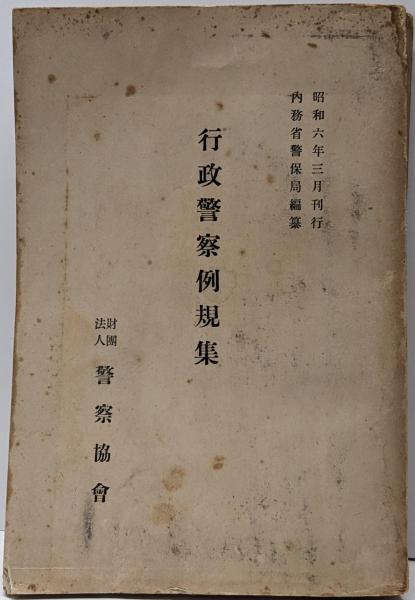 昭和六年三月刊行
內務省警保局編纂
行政警察例規集
財團法人 警察協會